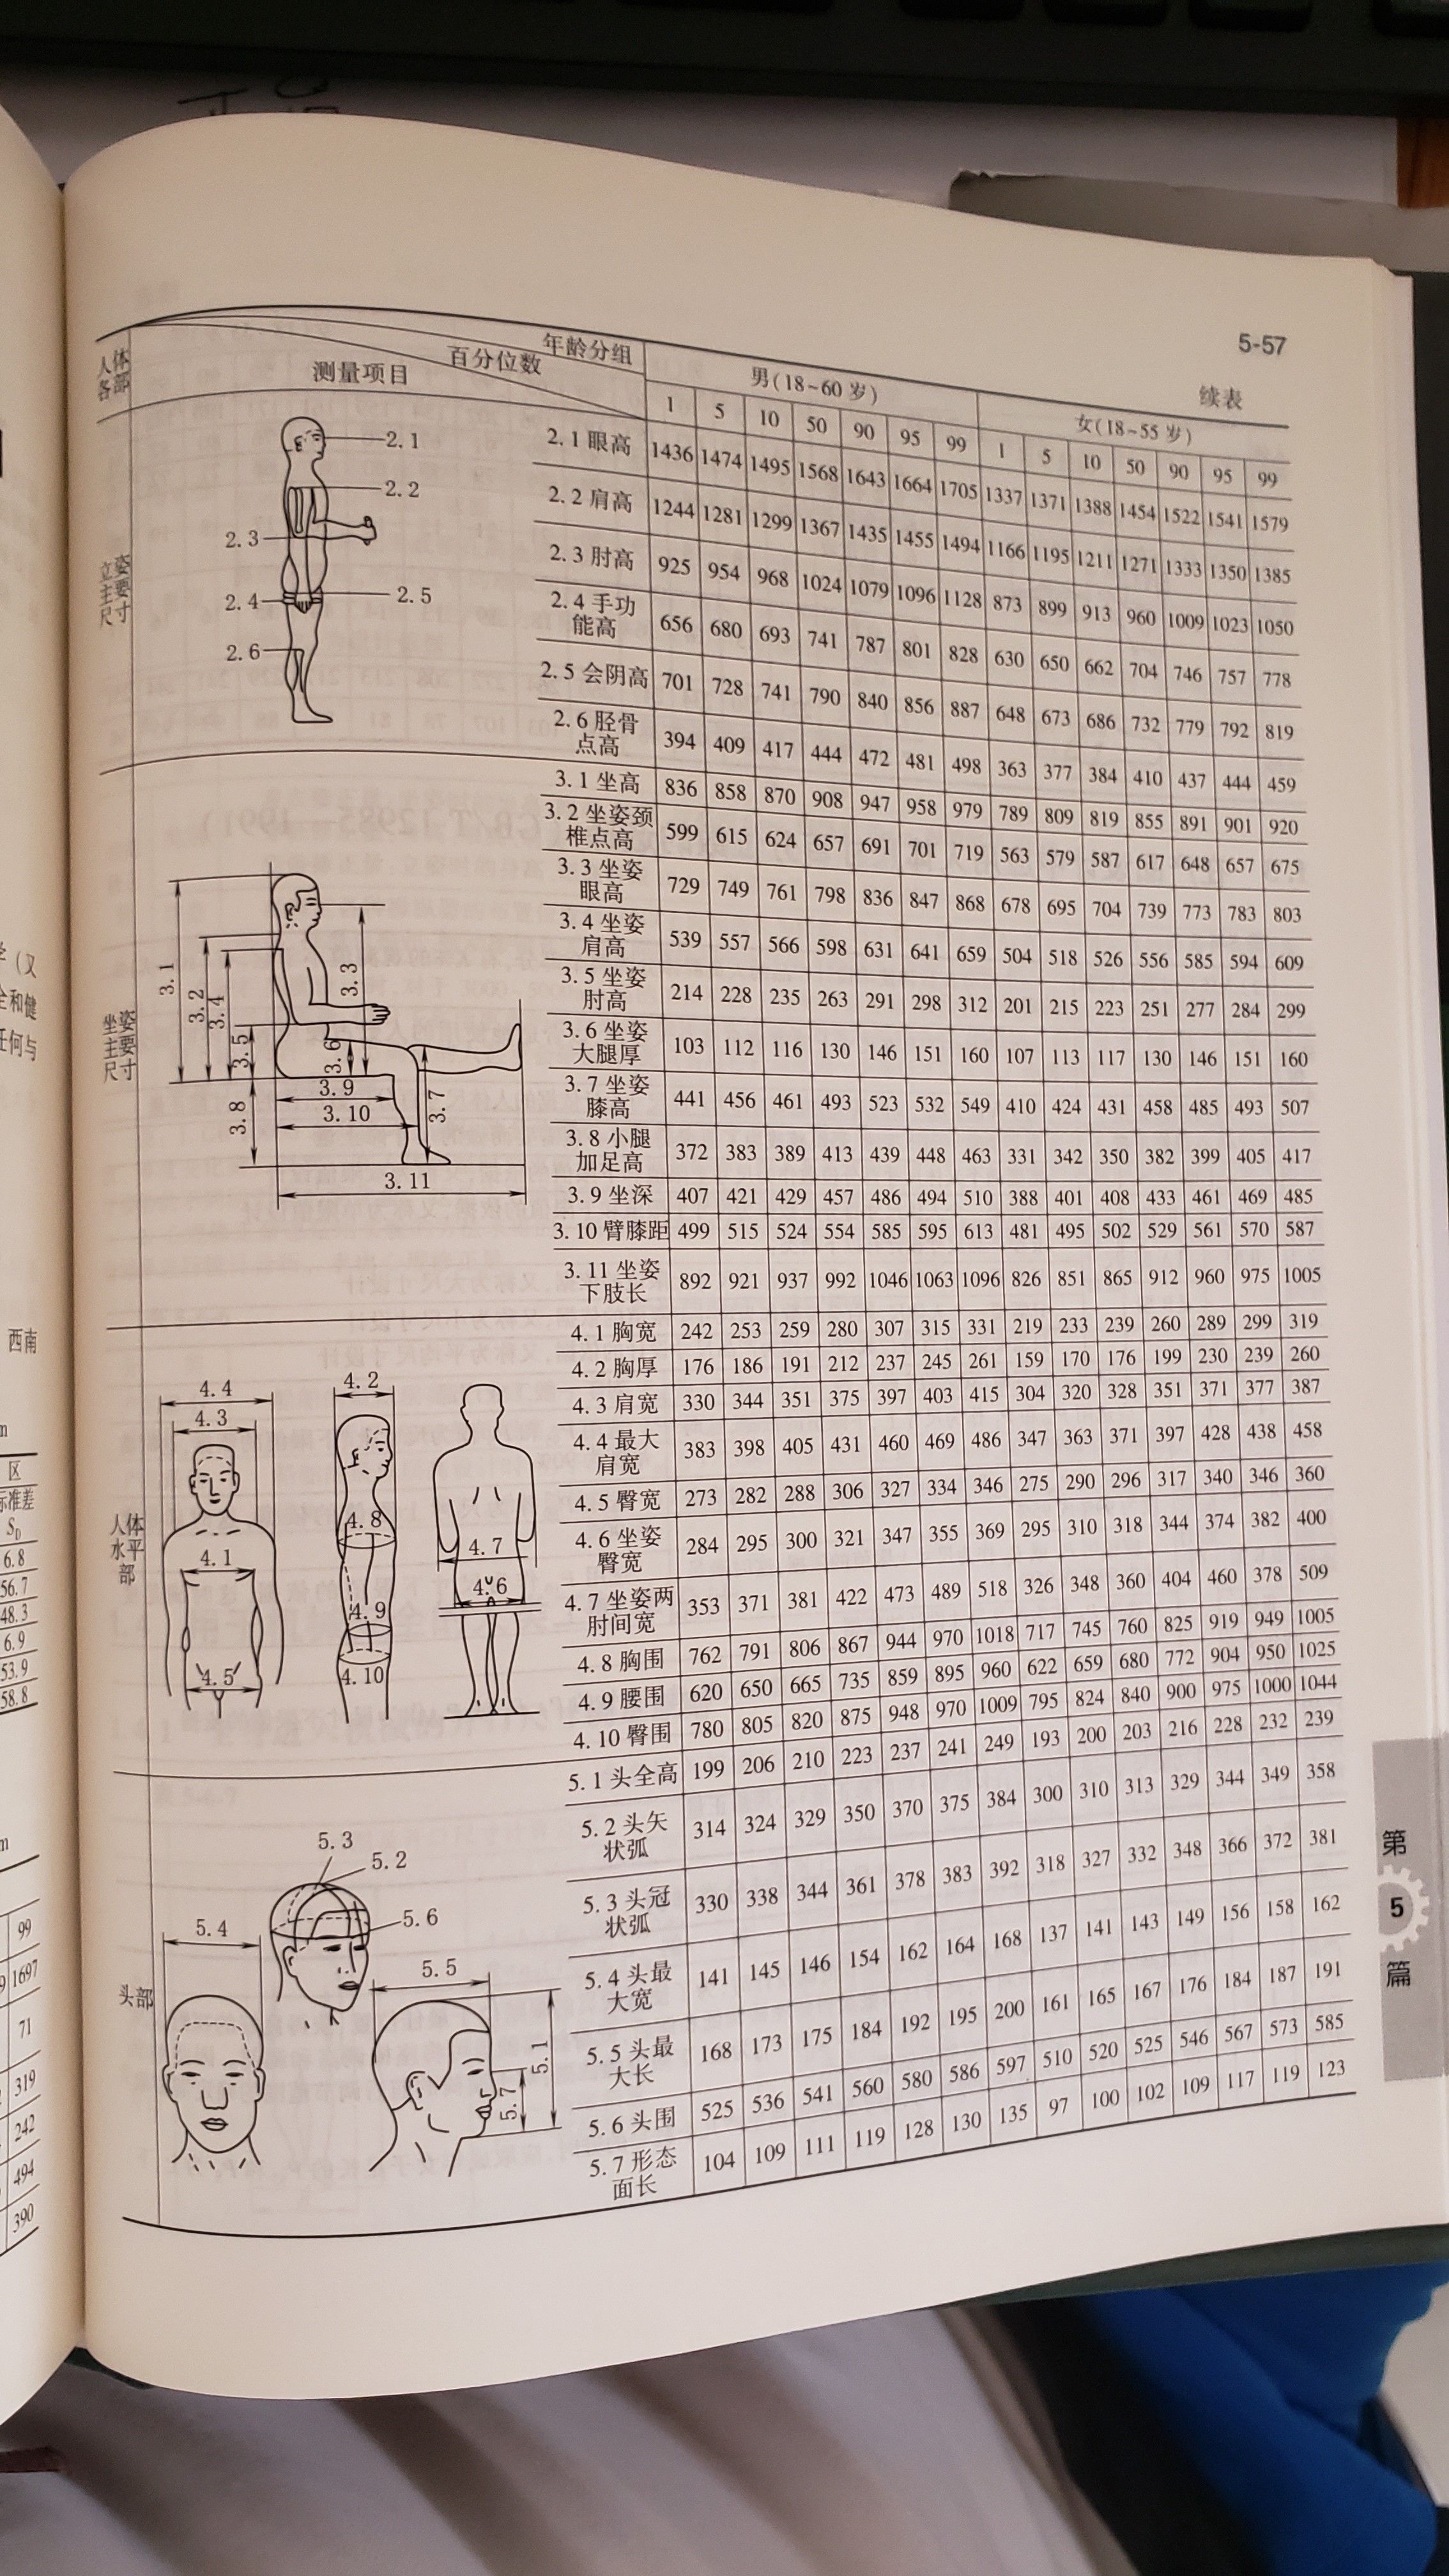 5-57
续表
人体各部 测量项目 百分位数 年龄分组 男(18~60 岁) 女(18~55 岁)
1 5 10 50 90 95 99 1 5 10 50 90 95 99
立姿主要尺寸
2.1
2.2
2.3
2.4
2.5
2.6
2.1 眼高 1436 1474 1495 1568 1643 1664 1705 1337 1371 1388 1454 1522 1541 1579
2.2 肩高 1244 1281 1299 1367 1435 1455 1494 1166 1195 1211 1271 1333 1350 1385
2.3 肘高 925 954 968 1024 1079 1096 1128 873 899 913 960 1009 1023 1050
2.4 手功能高 656 680 693 741 787 801 828 630 650 662 704 746 757 778
2.5 会阴高 701 728 741 790 840 856 887 648 673 686 732 779 792 819
2.6 胫骨点高 394 409 417 444 472 481 498 363 377 384 410 437 444 459
坐姿主要尺寸
3.1
3.2
3.4
3.3
3.5
3.6
3.9
3.10
3.7
3.8
3.11
3.1 坐高 836 858 870 908 947 958 979 789 809 819 855 891 901 920
3.2 坐姿颈椎点高 599 615 624 657 691 701 719 563 579 587 617 648 657 675
3.3 坐姿眼高 729 749 761 798 836 847 868 678 695 704 739 773 783 803
3.4 坐姿肩高 539 557 566 598 631 641 659 504 518 526 556 585 594 609
3.5 坐姿肘高 214 228 235 263 291 298 312 201 215 223 251 277 284 299
3.6 坐姿大腿厚 103 112 116 130 146 151 160 107 113 117 130 146 151 160
3.7 坐姿膝高 441 456 461 493 523 532 549 410 424 431 458 485 493 507
3.8 小腿加足高 372 383 389 413 439 448 463 331 342 350 382 399 405 417
3.9 坐深 407 421 429 457 486 494 510 388 401 408 433 461 469 485
3.10 臂膝距 499 515 524 554 585 595 613 481 495 502 529 561 570 587
3.11 坐姿下肢长 892 921 937 992 1046 1063 1096 826 851 865 912 960 975 1005
人体水平部
4.4
4.3
4.1
4.5
4.2
4.8
4.9
4.10
4.7
4.6
4.1 胸宽 242 253 259 280 307 315 331 219 233 239 260 289 299 319
4.2 胸厚 176 186 191 212 237 245 261 159 170 176 199 230 239 260
4.3 肩宽 330 344 351 375 397 403 415 304 320 328 351 371 377 387
4.4 最大肩宽 383 398 405 431 460 469 486 347 363 371 397 428 438 458
4.5 臀宽 273 282 288 306 327 334 346 275 290 296 317 340 346 360
4.6 坐姿臀宽 284 295 300 321 347 355 369 295 310 318 344 374 382 400
4.7 坐姿两肘间宽 353 371 381 422 473 489 518 326 348 360 404 460 378 509
4.8 胸围 762 791 806 867 944 970 1018 717 745 760 825 919 949 1005
4.9 腰围 620 650 665 735 859 895 960 622 659 680 772 904 950 1025
4.10 臀围 780 805 820 875 948 970 1009 795 824 840 900 975 1000 1044
头部
5.3
5.2
5.6
5.4
5.5
5.1
5.7
5.1 头全高 199 206 210 223 237 241 249 193 200 203 216 228 232 239
5.2 头矢状弧 314 324 329 350 370 375 384 300 310 313 329 344 349 358
5.3 头冠状弧 330 338 344 361 378 383 392 318 327 332 348 366 372 381
5.4 头最大宽 141 145 146 154 162 164 168 137 141 143 149 156 158 162
5.5 头最大长 168 173 175 184 192 195 200 161 165 167 176 184 187 191
5.6 头围 525 536 541 560 580 586 597 510 520 525 546 567 573 585
5.7 形态面长 104 109 111 119 128 130 135 97 100 102 109 117 119 123
第
5
篇
(又
和健
何与
西南
区
标准差
S_D
6.8
56.7
48.3
6.9
53.9
58.8
99
1697
71
319
242
494
390